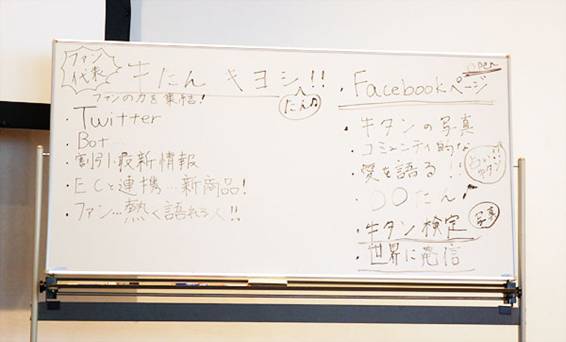 ファン
代表
牛たん キヨシ!!
ファンの力を集結!
たん♪
・Twitter
・Bot
・割引・最新情報
・ECと連携…新商品!
・ファン…熱く語れる人!!
OPEN
・Facebookページ
・牛タンの写真
・コミュニティ的な
・愛を語る!!
・〇〇たん!
・牛タン検定
写真
・世界に発信